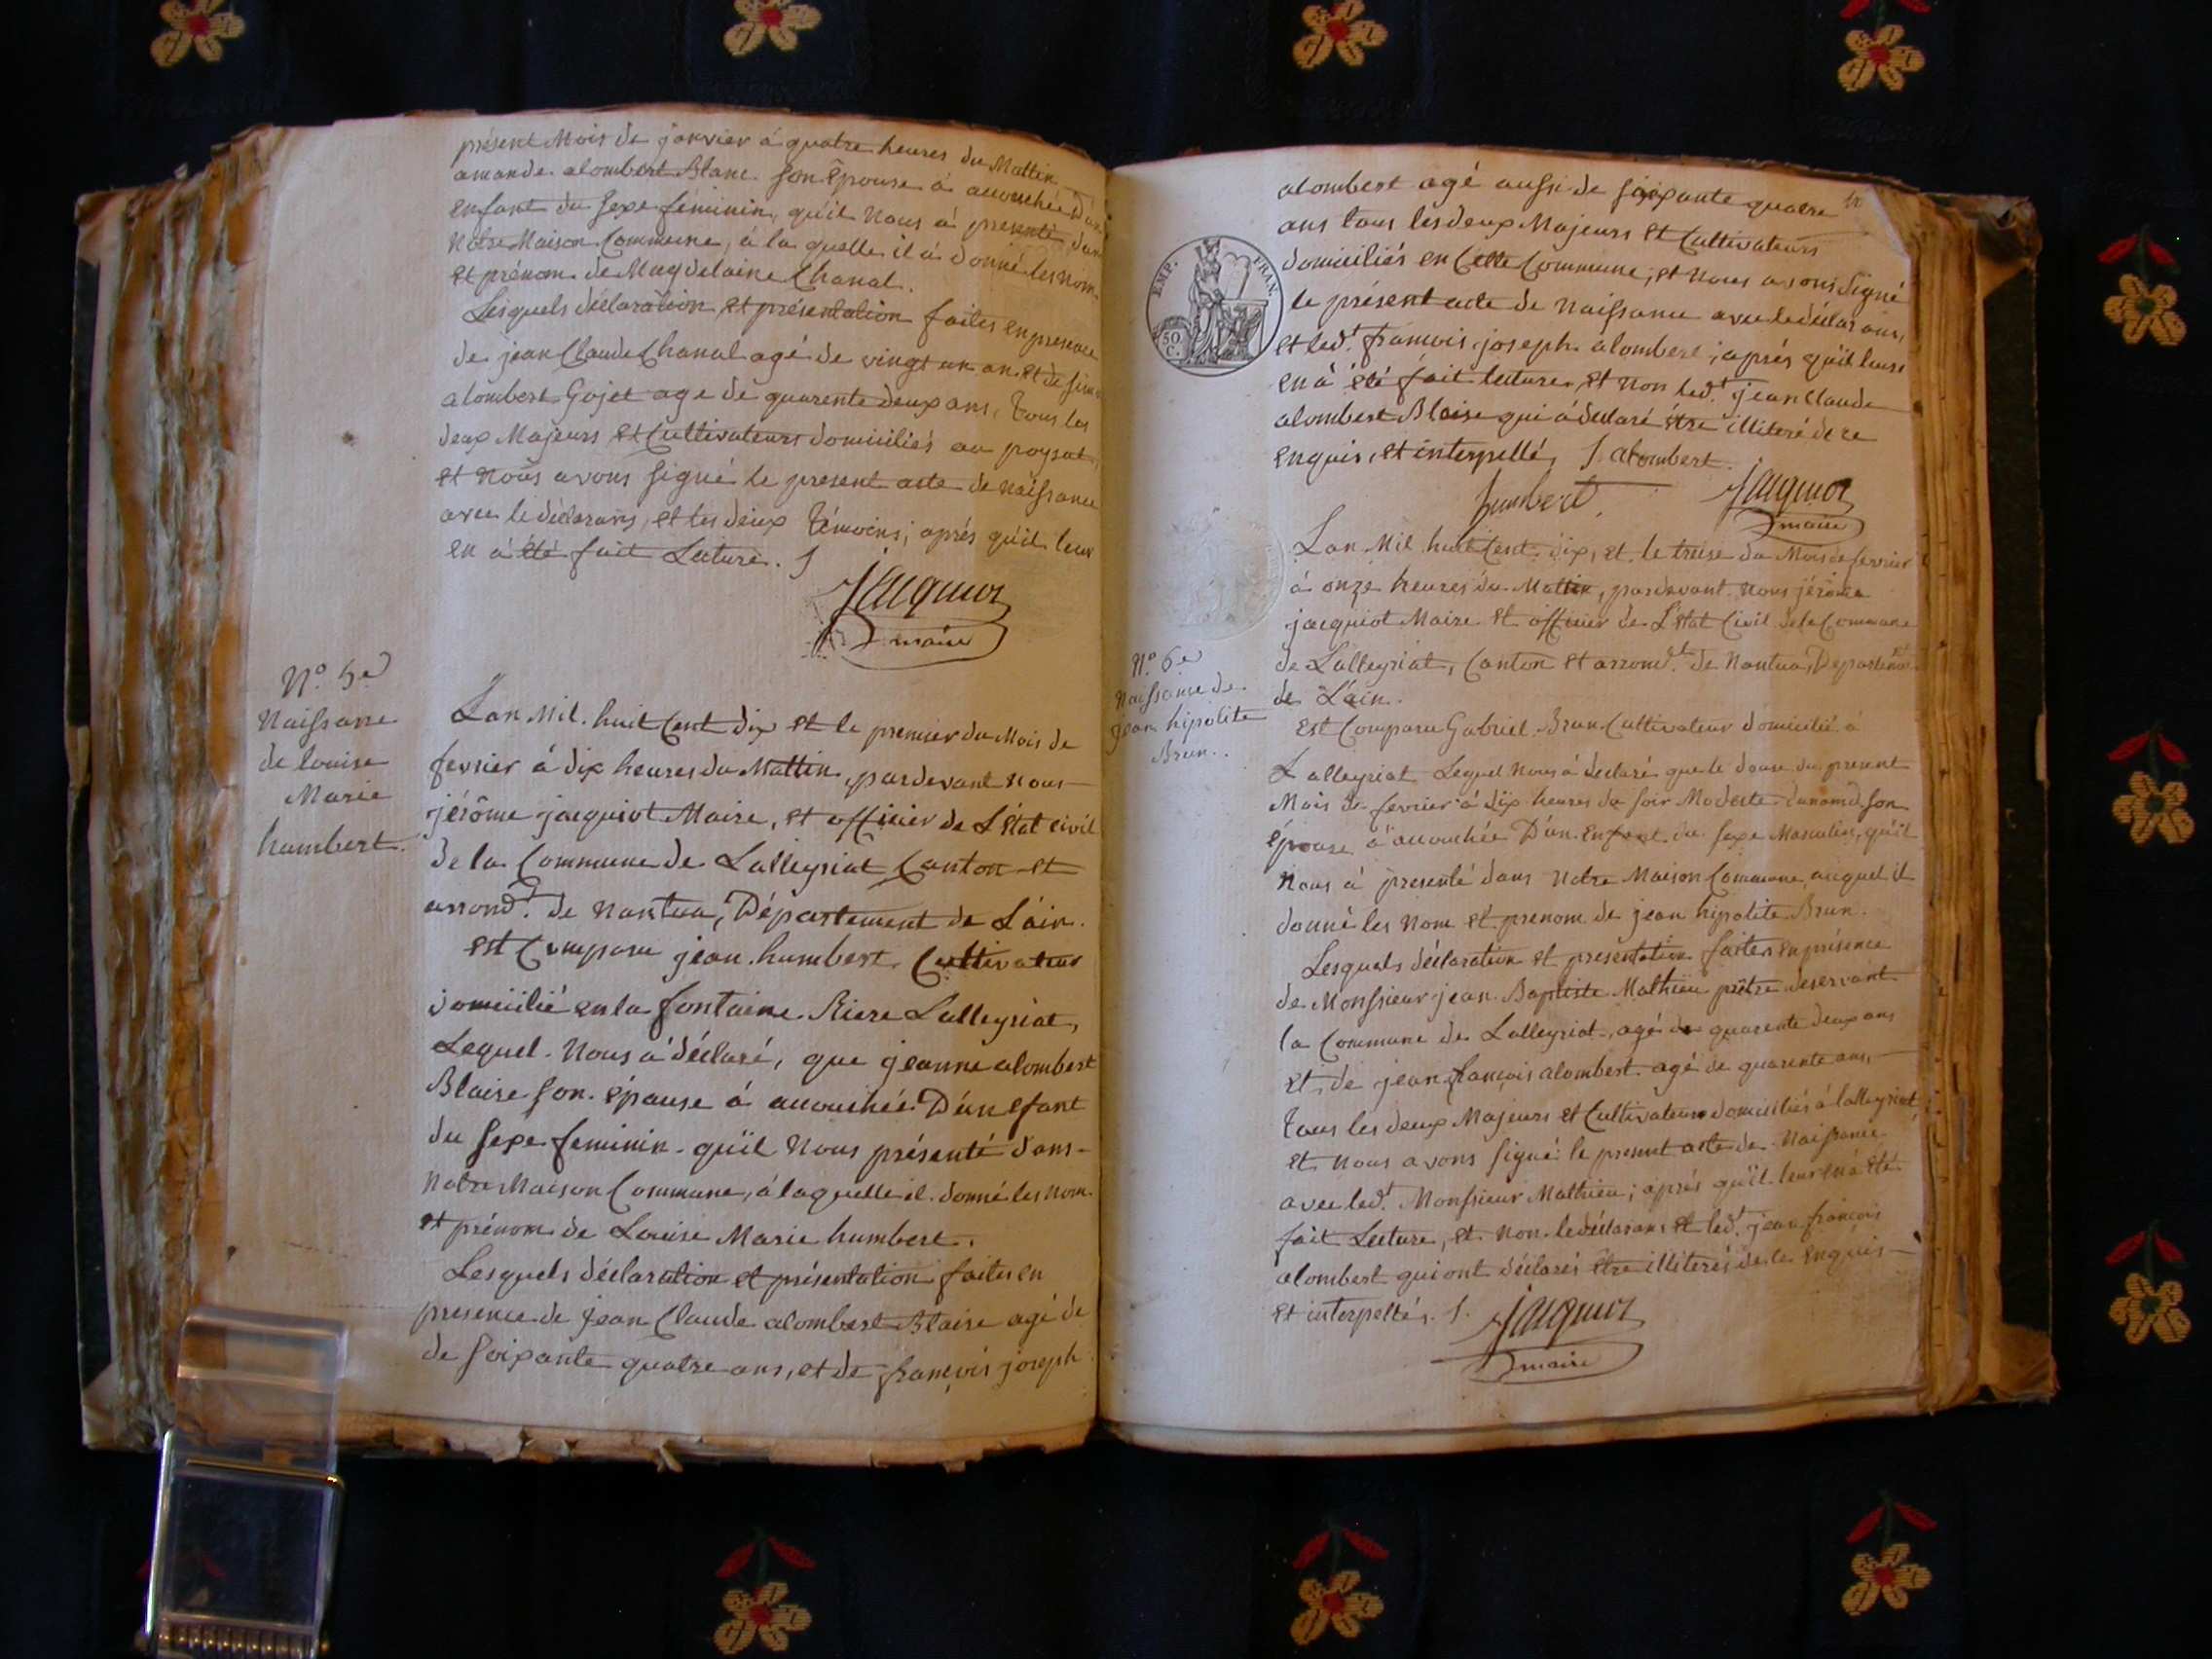 présent Mois de janvier á quatre heures du Mattin
amande alombert Blanc son Epouse á accouchée D'un
enfant du sexe féminin, qu'il Nous á presenté dans
Notre Maison Commune, á la quelle il á donné les Nom
et prénom de Magdelaine Chanal.
Lesquels déclaration et présentation faites en presence
de jean Claude Chanal agé de vingt un an et de
alombert Gojet age de quarente deux ans, tous les
deux Majeurs et Cultivateurs domiciliés au poysat,
et Nous avons signé le present acte de Naissance
avec le déclarans, et les deux témoins; aprés qu'il leur
en á été fait Lecture. /
Jacquiot
maire
N.º 5.e
Naissance
de louise
Marie
humbert.
Lan Mil huit Cent dix et le premier du Mois de
fevrier á dix heures du Mattin, pardevant Nous
jérôme jacquiot Maire, et officier de L'état civil
de la Commune de Lalleyriat Canton et
arrond.t de Nantua, Département de L'ain.
est Comparu jean humbert, Cultivateur
domicilié en la fontaine Riere Lalleyriat,
Lequel Nous á déclaré, que jeanne alombert
Blaise son épouse á accouchée D'un efant
du sexe feminin qu'il Nous présenté dans
Notre Maison Commune, á laquelle il donné les Nom
et prénom de Louise Marie humbert.
Lesquels déclaration et présentation faites en
presence de jean Claude alombert Blaise agé de
de soixante quatre ans, et de françois joseph
alombert agé aussi de soixante quatre
ans tous les deux Majeurs et Cultivateurs
domiciliés en Cette Commune, et Nous avons Signé
le présent acte de Naissance avec le déclarans,
et led.t francois joseph alombert; aprés qu'il leurs
en á été fait lecture, et Non led.t jean Claude
alombert Blaise qui á déclaré étre illiteré de ce
enquis, et interpellé, / alombert.
humbert. Jacquiot
maire
EMP. FRAN.
50 C.
N.º 6.e
Naissance de
jean hipolite
Brun.
Lan Mil huit Cent dix, et le treise du Mois de fevrier
á onze heures du Mattin, pardevant Nous jérôme
jacquiot Maire et officier de L'état Civil de la Commune
de Lalleyriat, Canton et arrond.t de Nantua, Departem.t
de L'ain.
est Comparu Gabriel Brun Cultivateur domicilié á
Lalleyriat Lequel Nous á declaré que le douse du present
Mois de fevrier á dix heures du soir Modeste Durand son
épouse á accouchée D'un Enfant du sexe Masculin, qu'il
Nous á presenté dans Notre Maison Commune, auquel il
donné les Nom et prenom de jean hipolite Brun.
Lesquels déclaration et présentation faites en présence
de Monssieur jean Baptiste Mathieu prétre deservant
la Commune de Lalleyriat, agé de quarente deux ans
et de jean françois alombert agé de quarente ans,
tous les deux Majeurs et Cultivateurs domiciliés á lalleyriat
et Nous avons signé le present acte de Naissance
avec led.t Monssieur Mathieu; aprés qu'il leur en á été
fait Lecture, et Non le déclarans et led.t jean françois
alombert qui ont déclarés étre illiterés de ce enquis
et interpellés. /. Jacquiot
maire